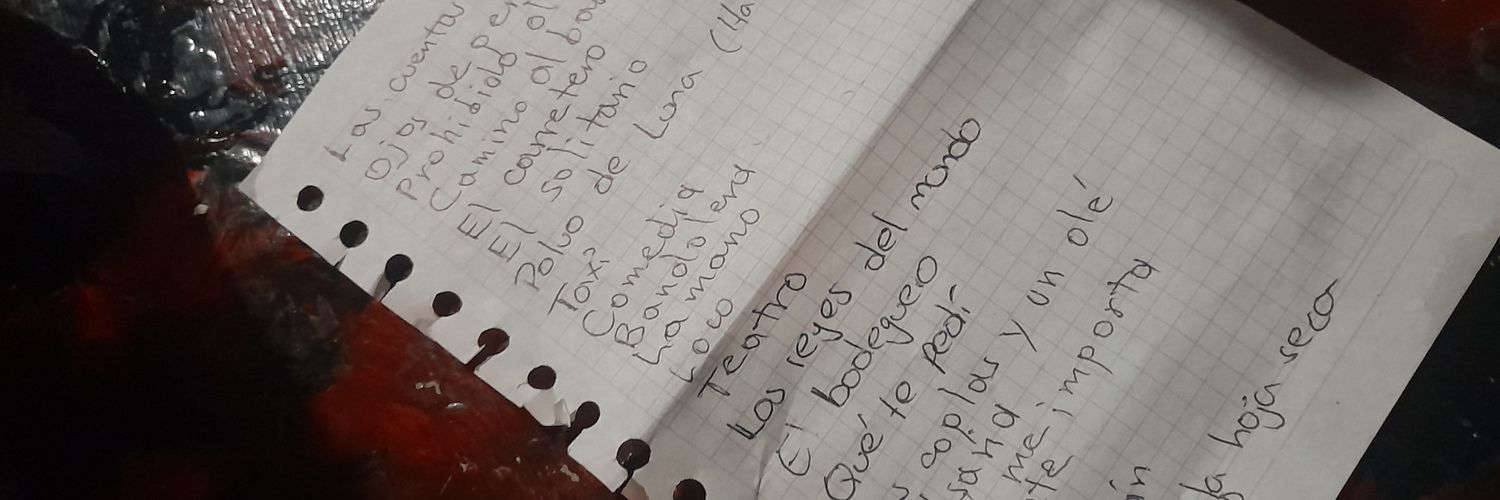 Las cuenta
Ojos de
Prohibido
Camino al
El carretero
El solitario
Polvo de Luna (Ha
Taxi
Comedia
Bandolera
La mano
Loco
Teatro
Los reyes del mundo
El bodeguero
Qué te pedí
coplas y un olé
me importa
la hoja seca